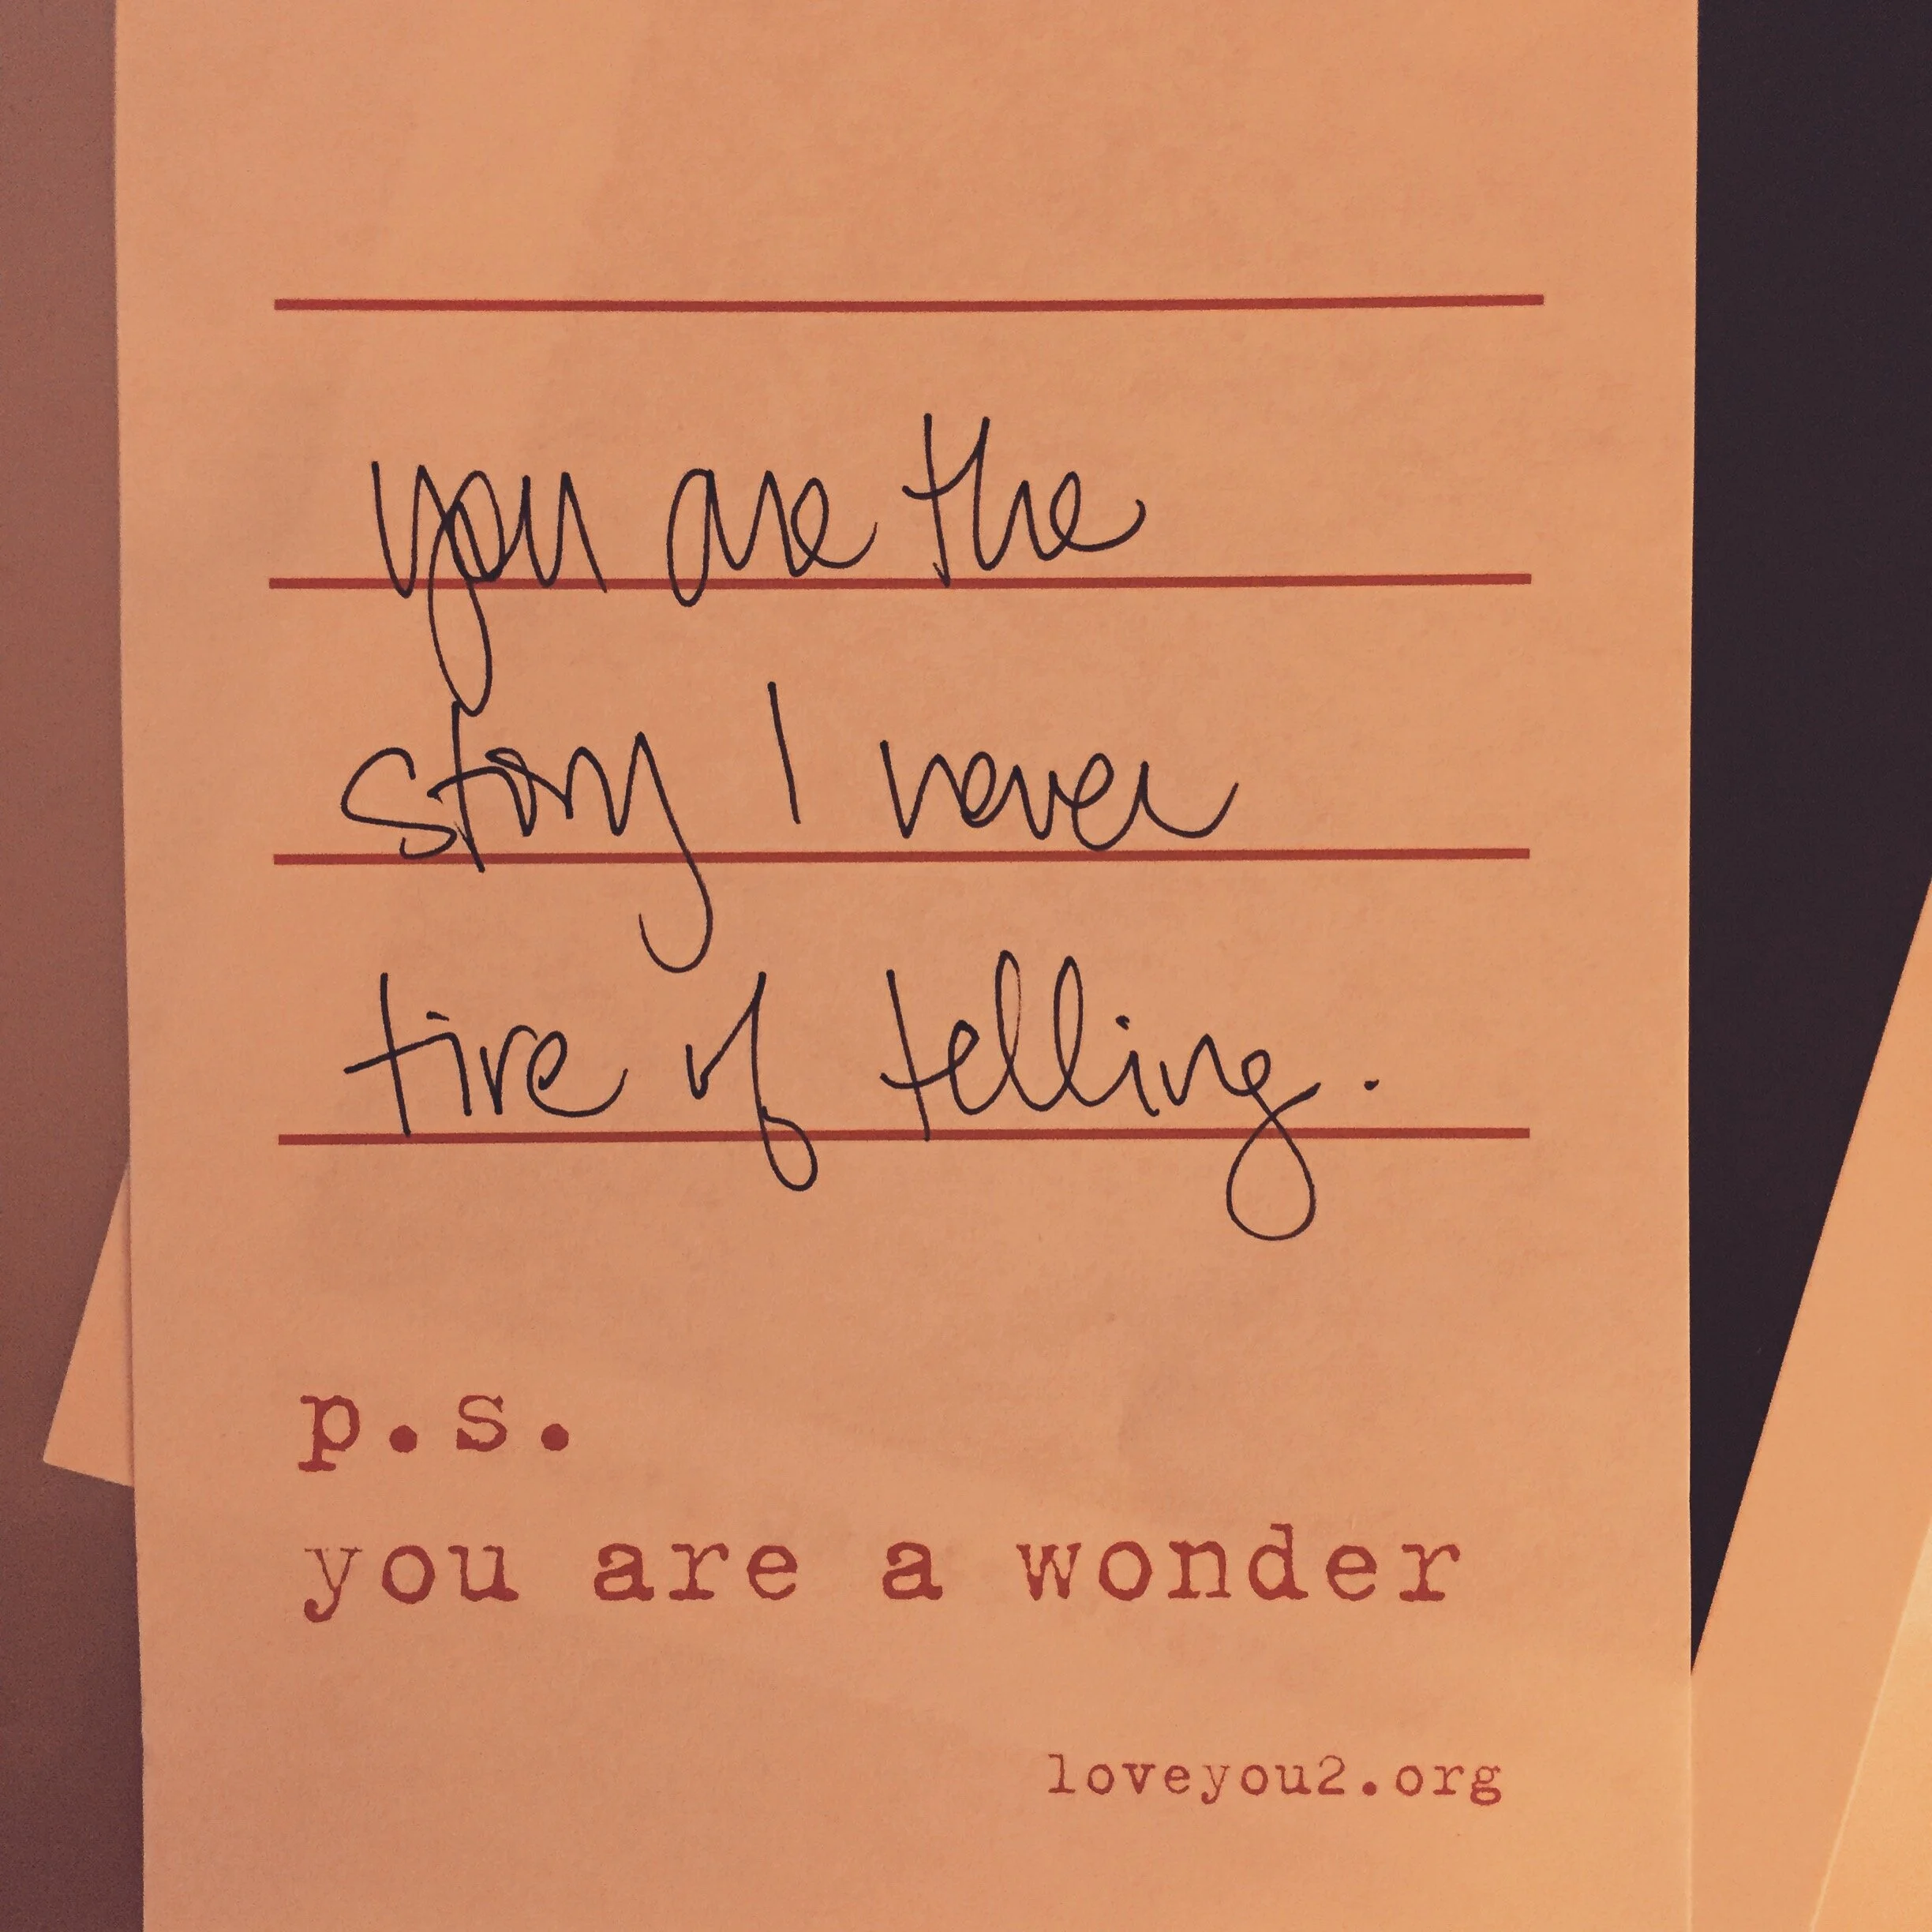 you are the
story I never
tire of telling.
p.s.
you are a wonder
loveyou2.org